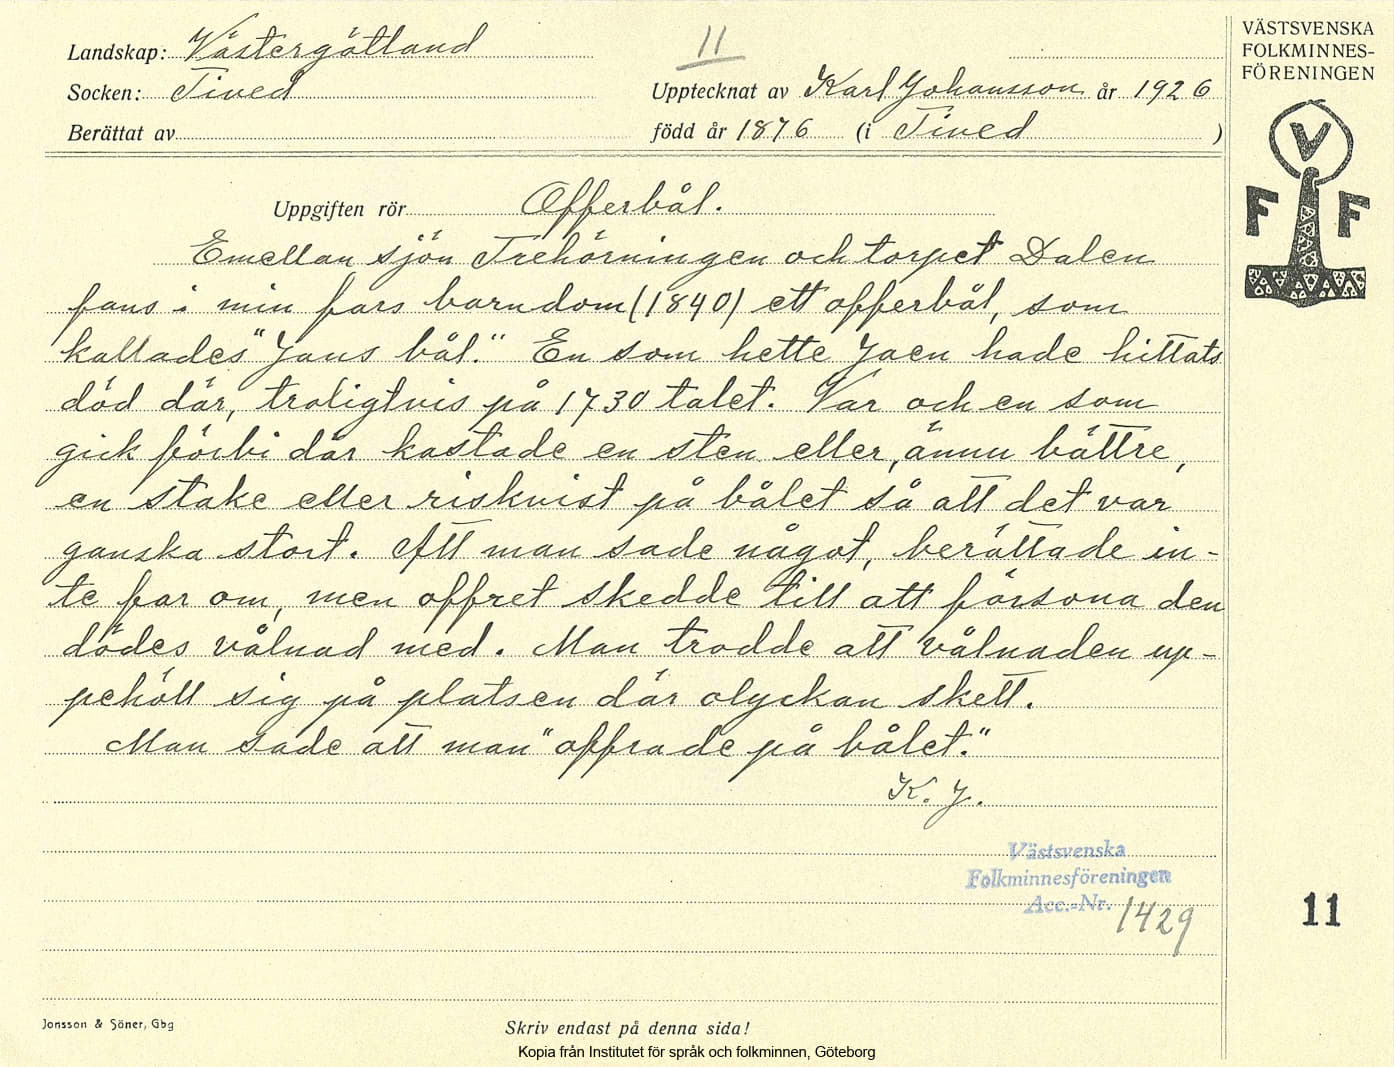 Landskap: Västergötland
11
Socken: Tived
Upptecknat av Karl Johansson år 1926
Berättat av
född år 1876 (i Tived )
VÄSTSVENSKA
FOLKMINNES-
FÖRENINGEN
V
F F
Uppgiften rör Offerbål.
Emellan sjön Trehörningen och torpet Dalen
fans i min fars barndom (1840) ett offerbål, som
kallades "Jans bål." En som hette Jaen hade hittats
död där, troligtvis på 1730 talet. Var och en som
gick förbi där kastade en sten eller, ännu bättre,
en stake eller riskvist på bålet så att det var
ganska stort. Att man sade något, berättade in-
te far om, men offret skedde till att försona den
dödes vålnad med. Man trodde att vålnaden up-
pehöll sig på platsen där olyckan skett.
Man sade att man "offrade på bålet."
K. J.
Västsvenska
Folkminnesföreningen
Acc.-Nr. 1429
11
Jonsson & Söner, Gbg
Skriv endast på denna sida!
Kopia från Institutet för språk och folkminnen, Göteborg